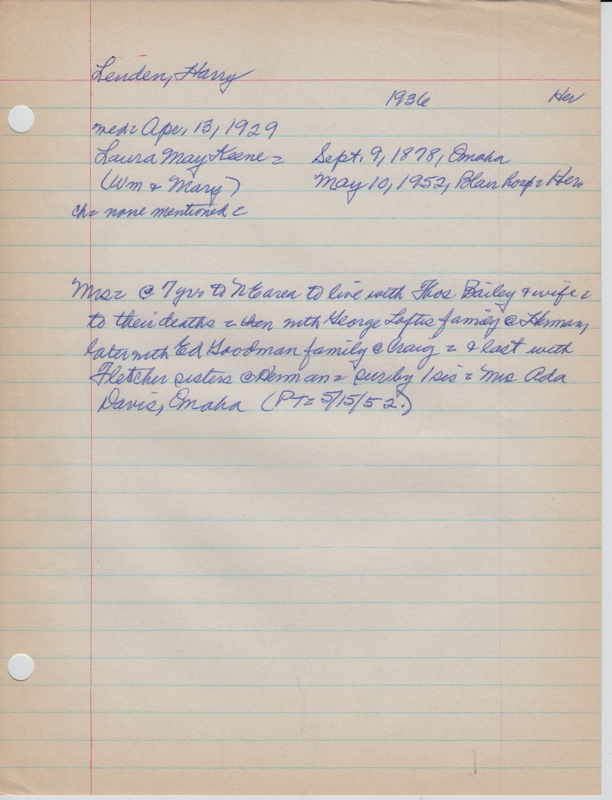 Lenden, Harry
1936 Her
med= Apr. 13, 1929
Laura May Keene = Sept. 9, 1878, Omaha
(Wm & Mary) May 10, 1952, Blair hosp = Her
ch= none mentioned =
Mrs= @ 7 yrs to NE area to live with Thos Bailey & wife =
to their deaths = then with George Loftus family @ Herman,
later with Ed Goodman family @ Craig = & last with
Fletcher sisters @ Herman = sur by 1 sis = Mrs Ada
Davis, Omaha (PT= 5/15/52.)